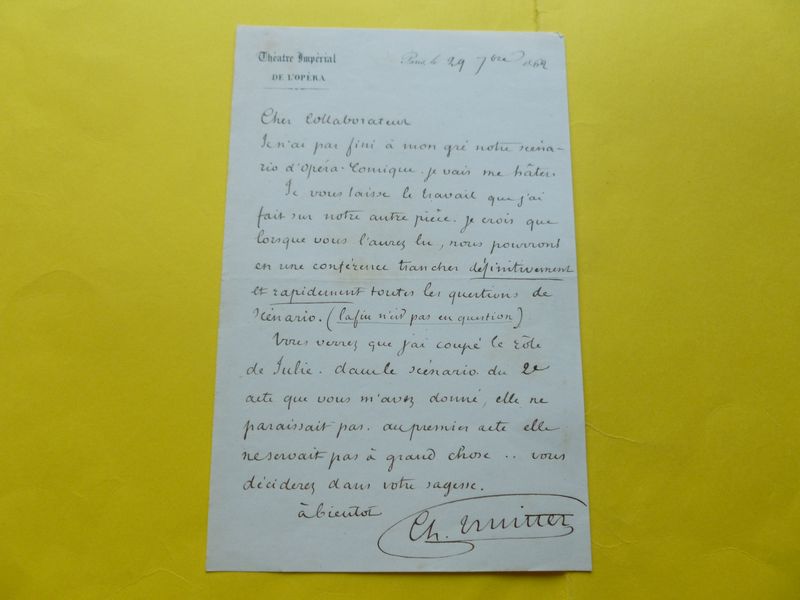 Théâtre Impérial
DE L'OPÉRA
Paris le 29 7bre 1862
Cher Collaborateur
Je n'ai pas fini à mon gré notre scéna-
rio d'Opéra-Comique. je vais me hâter.
Je vous laisse le travail que j'ai
fait sur notre autre pièce. je crois que
lorsque vous l'aurez lu, nous pourrons
en une conférence trancher définitivement
et rapidement toutes les questions de
scénario. (la fin n'est pas en question)
Vous verrez que j'ai coupé le rôle
de Julie. dans le scénario du 2e
acte que vous m'avez donné, elle ne
paraissait pas. au premier acte elle
ne servait pas à grand chose .. vous
déciderez dans votre sagesse.
à bientot
Ch. Nuitter